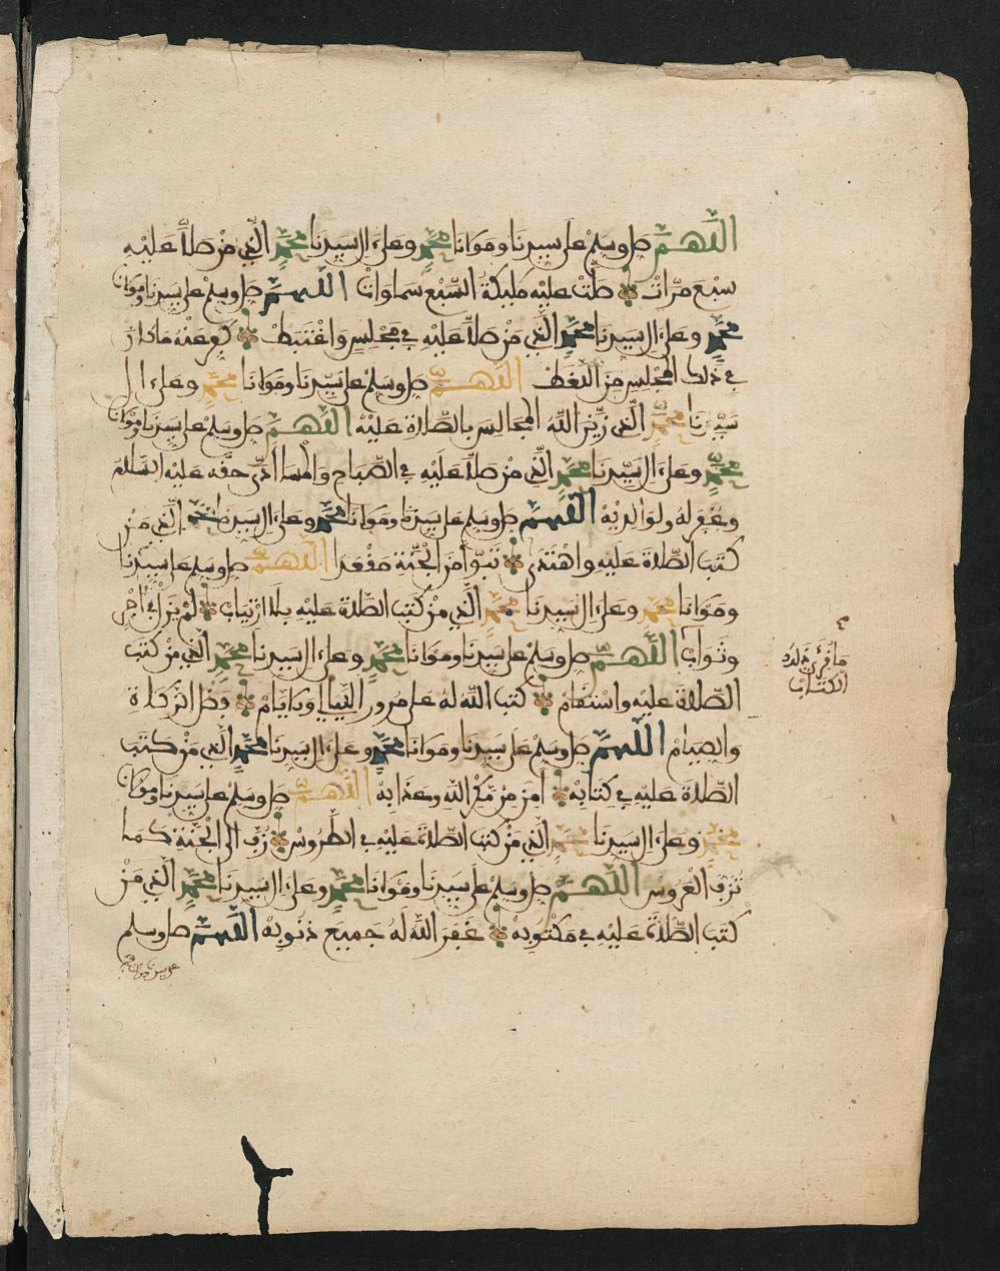 اللهم صل وسلم على سيدنا ومولانا محمد وعلى ءال سيدنا محمد الذي من صلا عليه
سبع مرات صلت عليه مليكة السبع سماوات اللهم صل وسلم على سيدنا ومولانا
محمد وعلى ءال سيدنا محمد الذي من صلا عليه في مجلس واغتبط كفر عنه ما كان
في ذلك المجلس من اللغط اللهم صل وسلم على سيدنا ومولانا محمد وعلى ءال
سيدنا محمد الذي زين الله المجالس بالصلاة عليه اللهم صل وسلم على سيدنا ومولانا
محمد وعلى ءال سيدنا محمد الذي من صلا عليه في الصباح والمسا أدى حقه عليه السلام
وغفر له ولوالديه اللهم صل وسلم على سيدنا ومولانا محمد وعلى ءال سيدنا محمد الذي من
كتب الصلاة عليه واهتدى تبوأ من الجنة مقعدا اللهم صل وسلم على سيدنا
ومولانا محمد وعلى ءال سيدنا محمد الذي من كتب الصلاة عليه بلا ارتياب لم يزل في أجر
وثواب اللهم صل وسلم على سيدنا ومولانا محمد وعلى ءال سيدنا محمد الذي من كتب
الصلاة عليه واستقام كتب الله له على مرور الليالي والايام فضل الزكاة
والصيام اللهم صل وسلم على سيدنا ومولانا محمد وعلى ءال سيدنا محمد الذي من كتب
الصلاة عليه في كتابه أمن من مكر الله وعذابه اللهم صل وسلم على سيدنا ومولانا
محمد وعلى ءال سيدنا محمد الذي من كتب الصلاة عليه في الطروس زف الى الجنة كما
تزف العروس اللهم صل وسلم على سيدنا ومولانا محمد وعلى ءال سيدنا محمد الذي من
كتب الصلاة عليه في مكتوبه غفر الله له جميع ذنوبه اللهم صل وسلم
على سيدنا ومولانا محمد
الكتاب